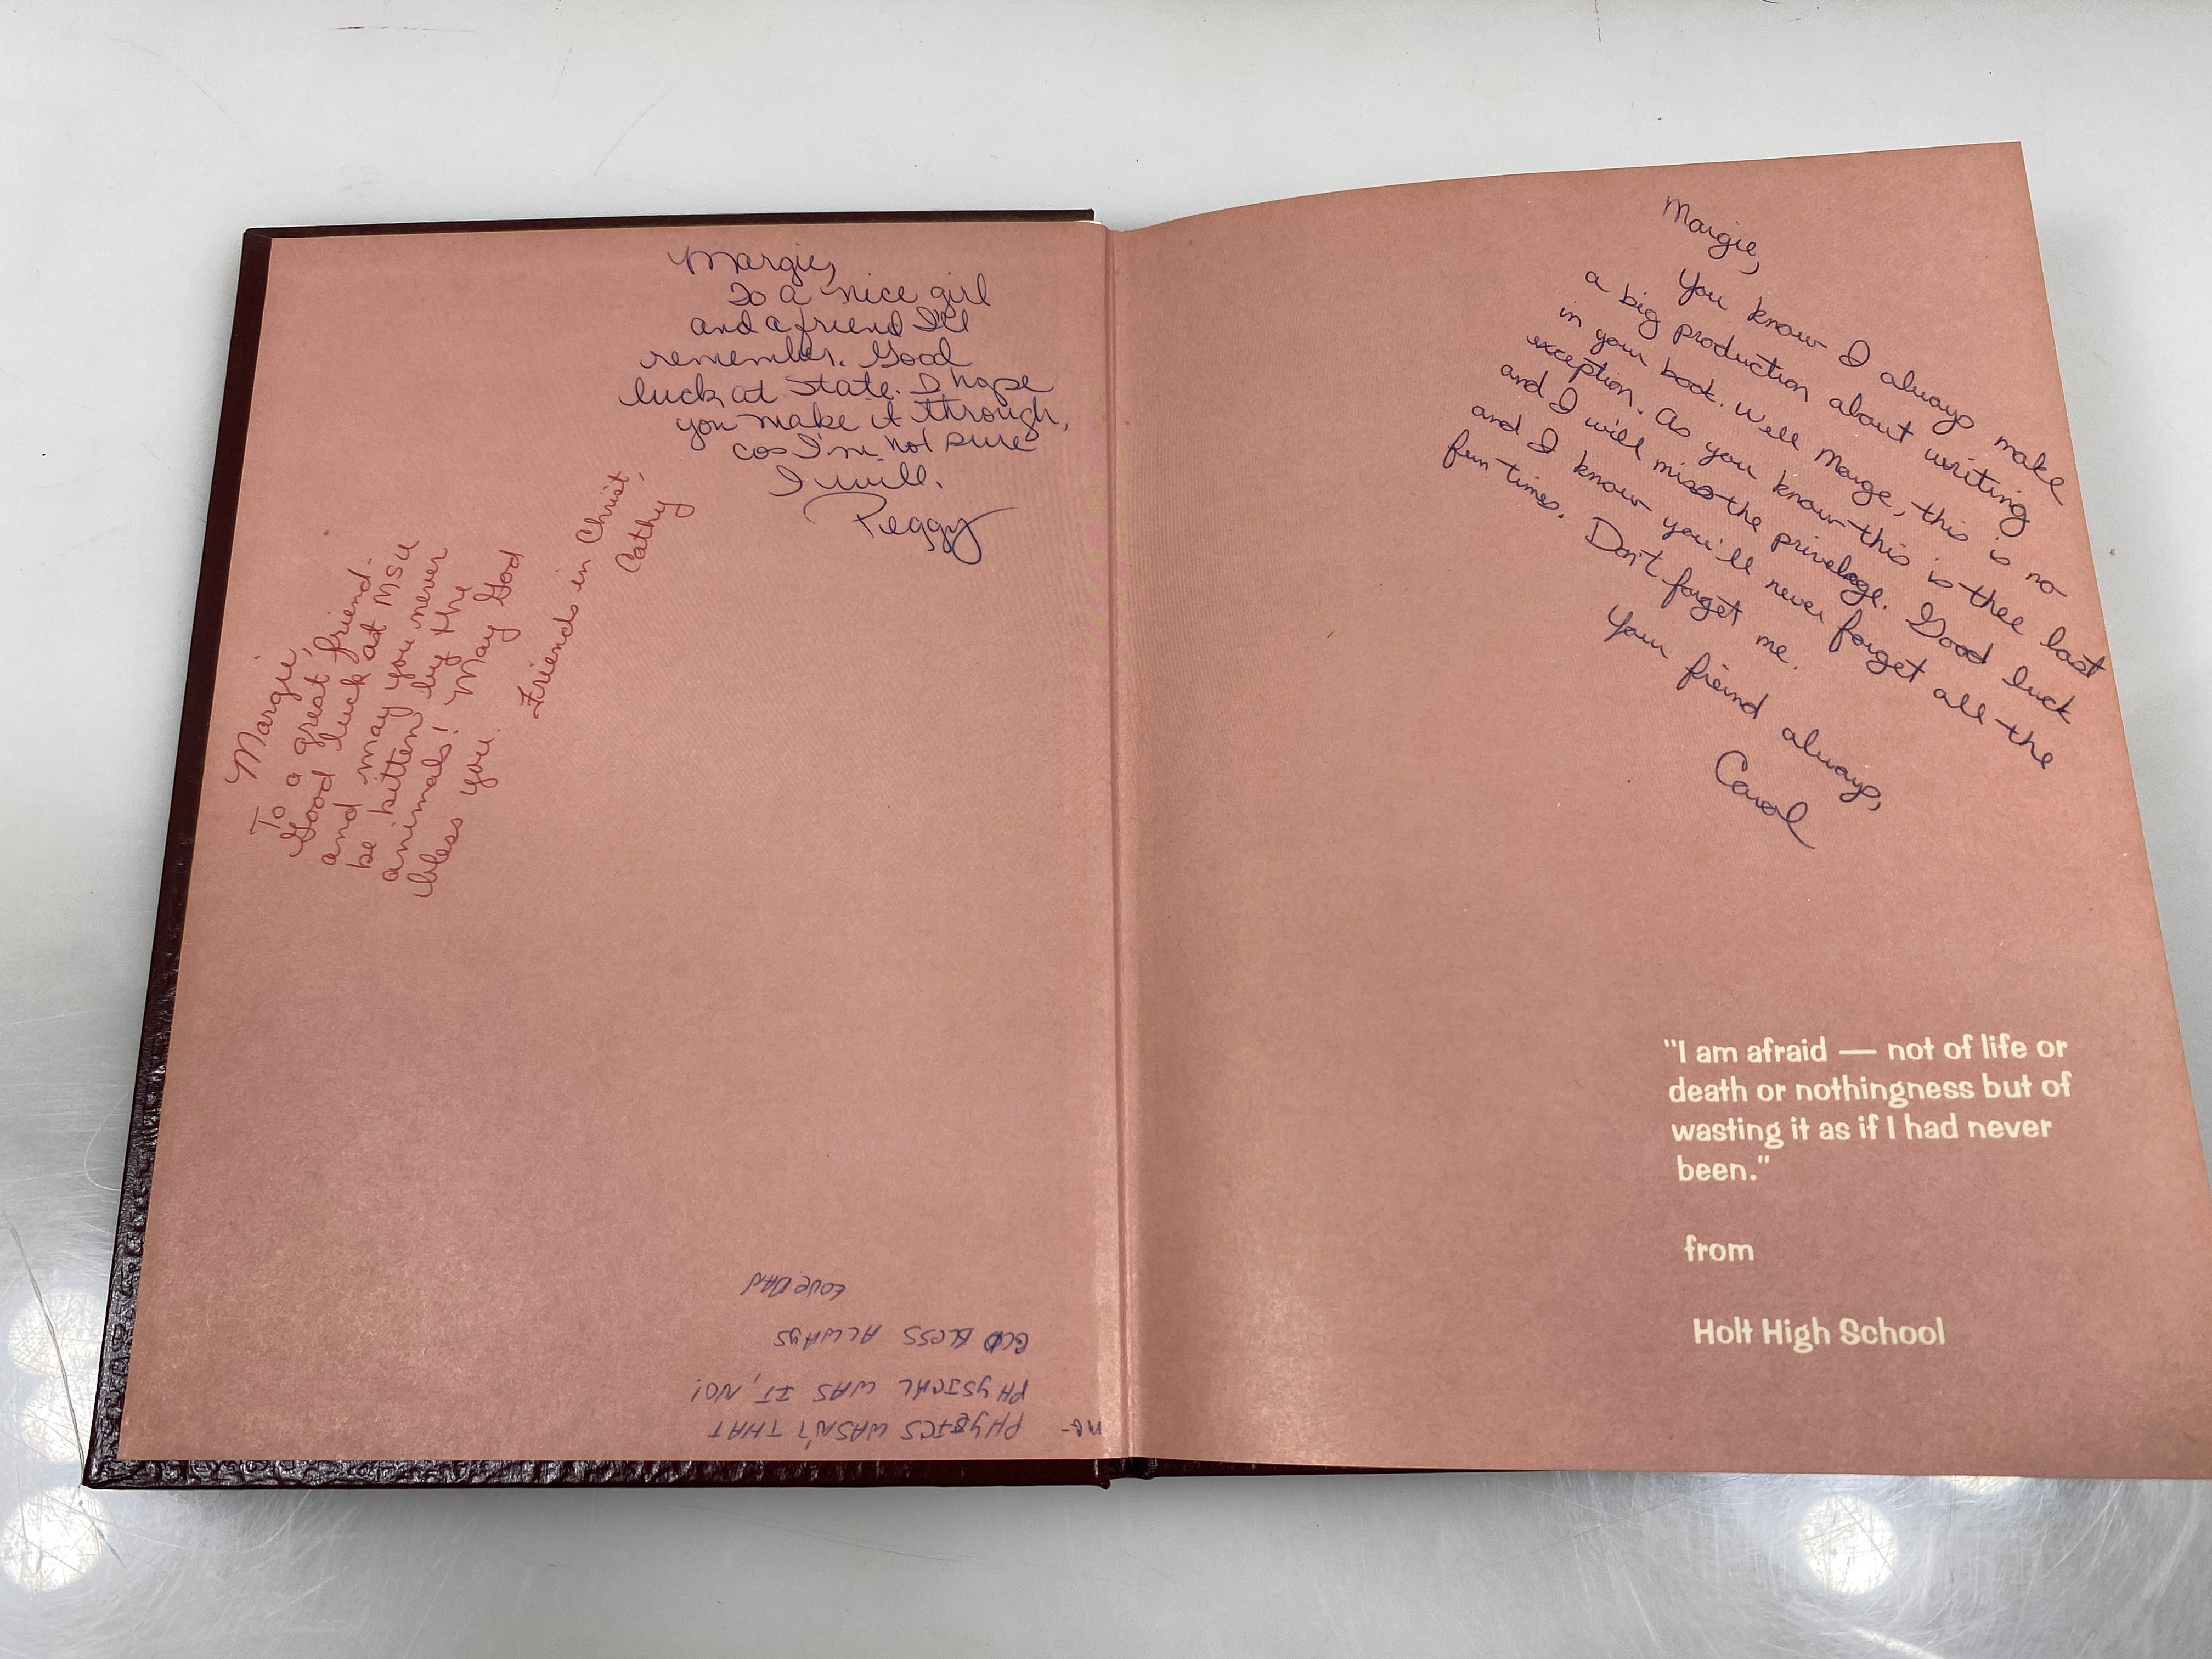 Margie,
To a nice girl
and a friend I'll
remember. Good
luck at State. I hope
you make it through,
cos I'm not sure
I will.
Peggy
Margie,
To a great friend-
Good luck at MSU
and may you never
be bitten by the
animals! May God
bless you.
Friends in Christ,
Cathy
PHYSICS WASN'T THAT
PHYSICAL WAS IT, NO!
GOD BLESS ALWAYS
LOVE DAN
Margie,
You know I always make
a big production about writing
in your book. Well Marge, this is no
exception. As you know this is thee last
and I will miss the privelage. Good luck
and I know you'll never forget all the
fun times. Don't forget me.
Your freind always,
Carol
"I am afraid — not of life or
death or nothingness but of
wasting it as if I had never
been."
from
Holt High School